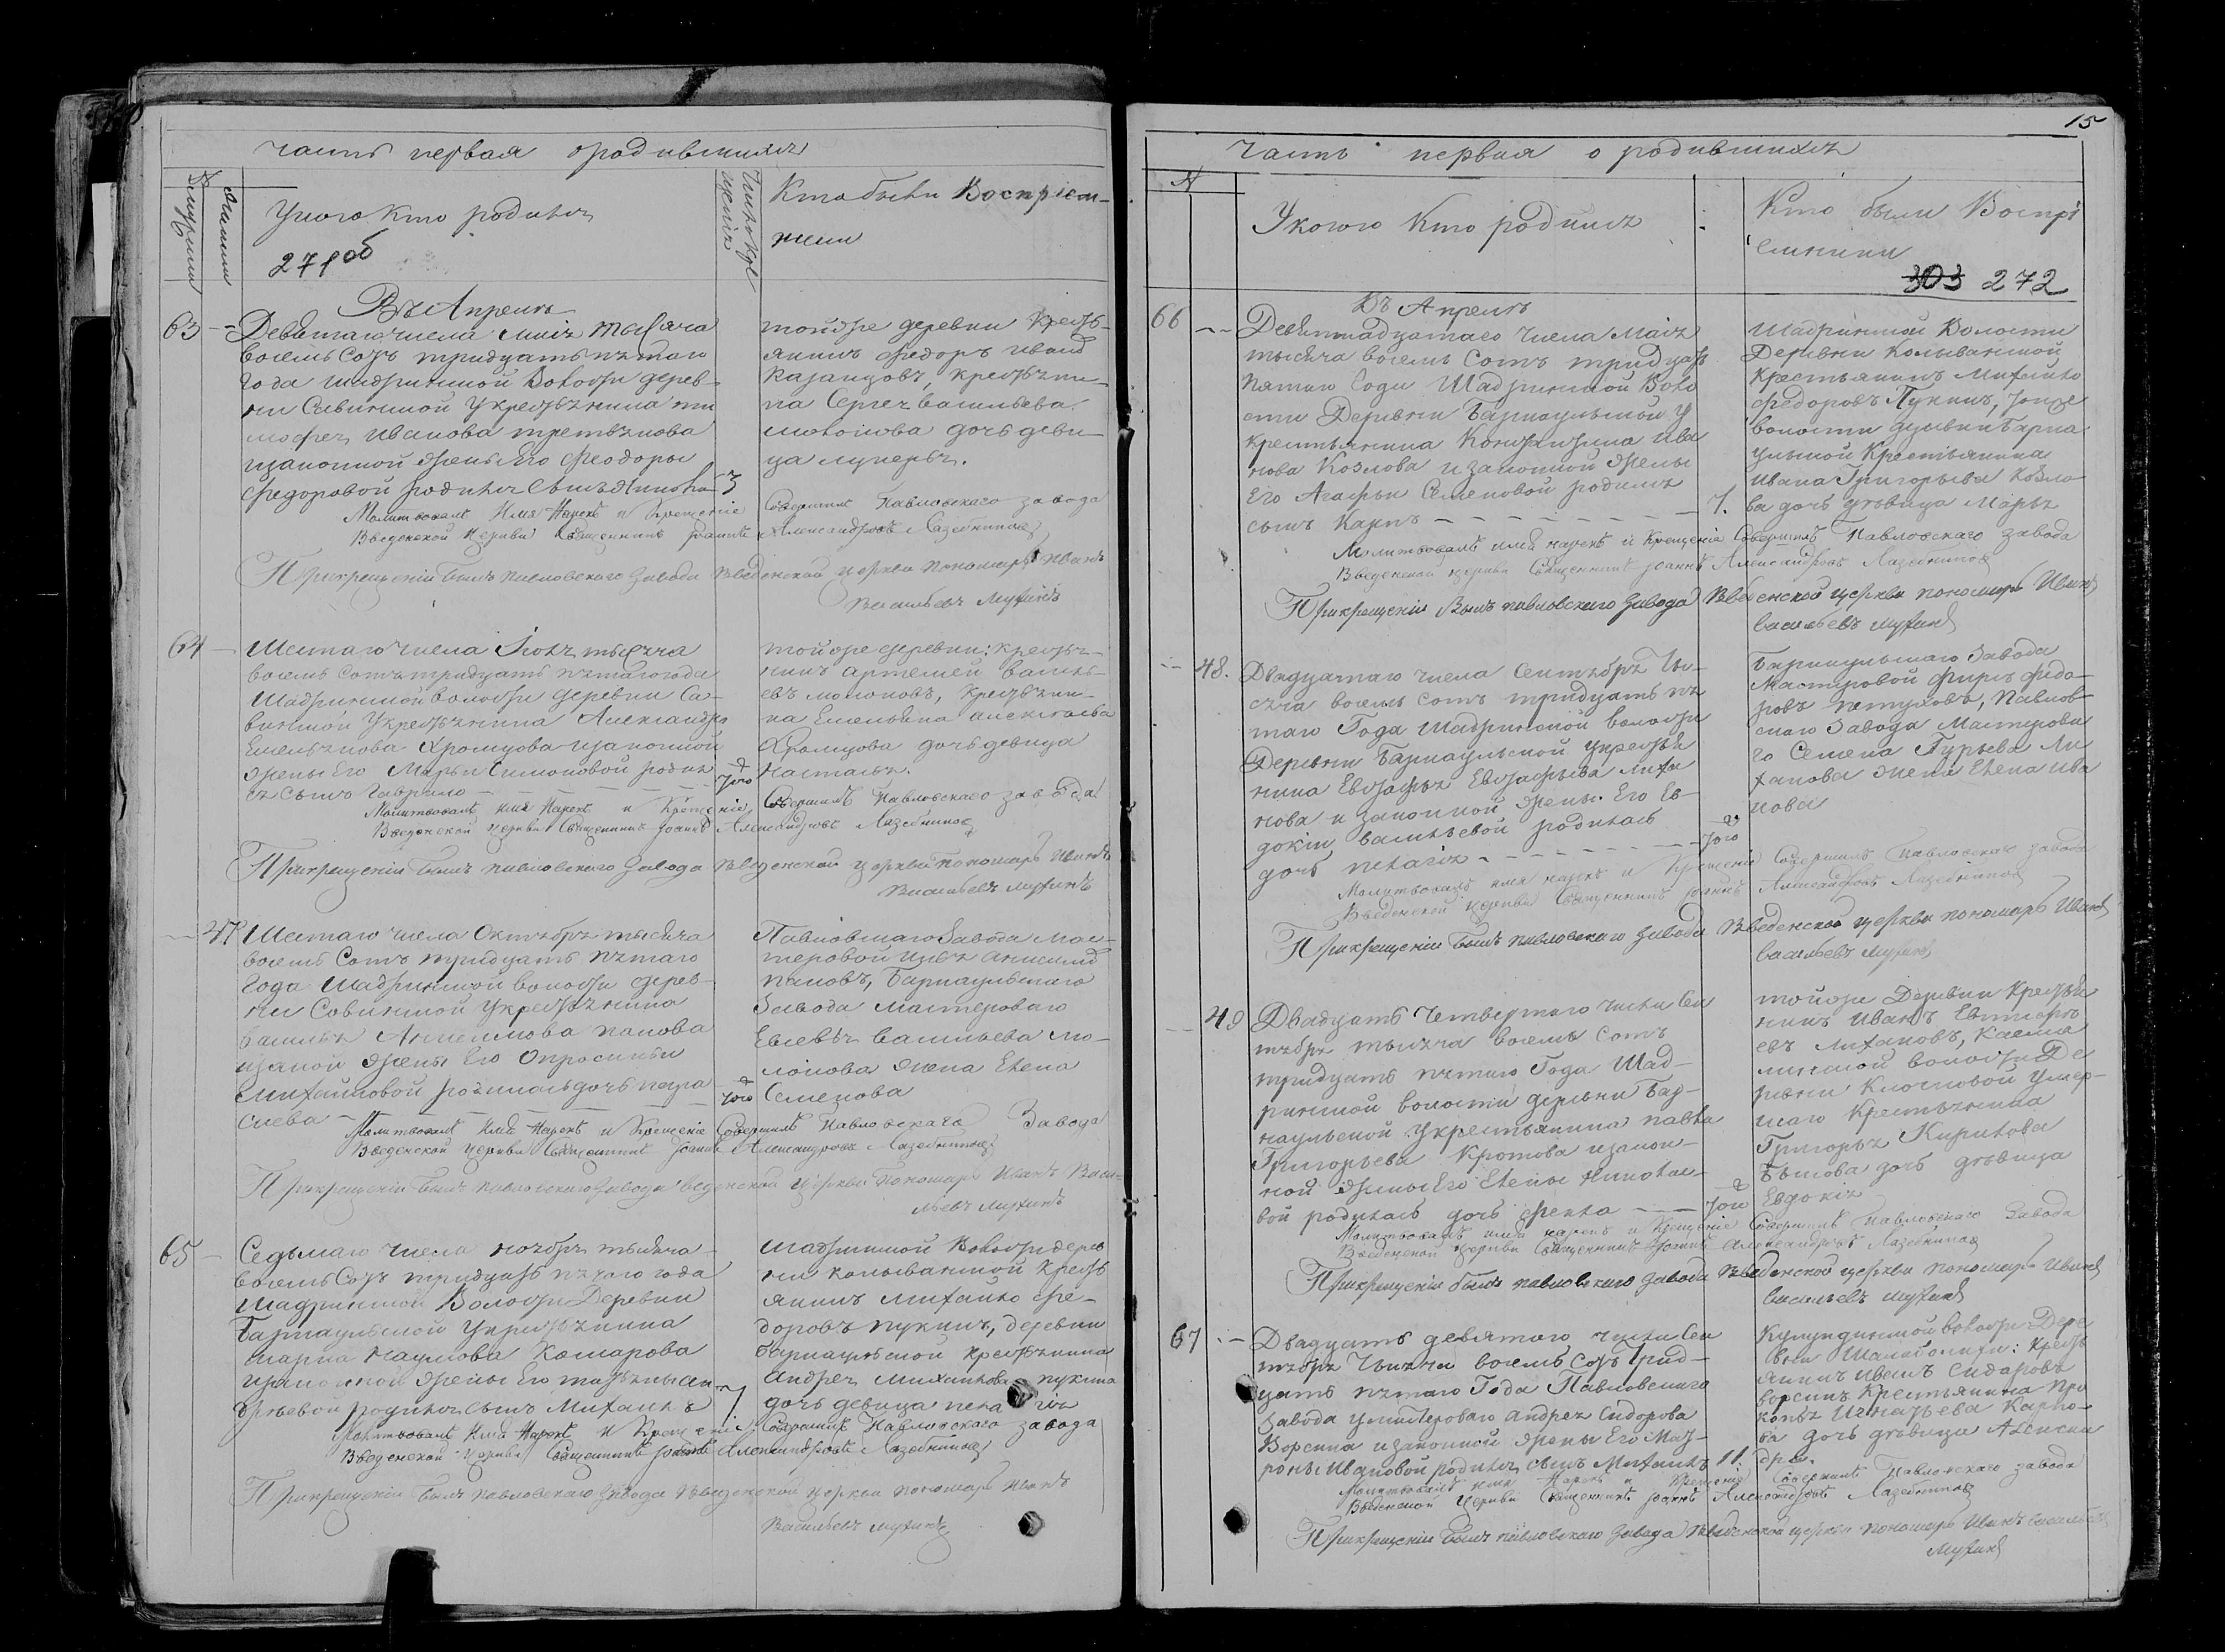 часть первая о родившихся
У кого кто родился
Кто были Воспріем-
ники
271 об
Въ Апреле
63
Девятаго числа Маія тысяча
восемь сотъ тридцать пятаго
года Шадринской Волости дерев-
ни Савинской У крестьянина ти
мофея Иванова третьякова
изаконной жены Его Феодоры
Федоровой родился сынъ
3
тойже деревни Кресть-
янинъ Федоръ Иванов
Казанцовъ, крестьяни-
на Сергея Васильева
молокова дочь деви-
ца
Молитвовалъ Имя Нарекъ и Крещеніе Совершилъ Павловскаго завода
Введенской Церкви Священникъ Іоаннъ Александровъ Лазебников
При крещеніи былъ павловскаго завода Введенской церкви пономарь Иванъ
Васильевъ Мухинъ
64
Шестаго числа тысяча
восемь сотъ тридцать пятаго года
Шадринской волости деревни Са-
винской У крестьянина Александра
Емельянова Хромцова изаконной
жены Его Марьи Симоновой родил
ся сынъ Гаврило
того
тойже деревни: кресть-
нинъ Артемей Василь-
евъ молоковъ, крестьяни-
на Емельяна алексеева
Хромцова дочь девица
Настасья.
Молитвовалъ имя Нарекъ и Крещеніе Совершилъ Павловскаго завода
Введенской церкви Священникъ Іоаннъ Александровъ Лазебников
При крещеніи былъ павловскаго завода Введенской церкви пономарь Иванъ
Васильевъ Мухинъ
47
Шестаго числа Октября тысяча
восемь сотъ тридцать пятаго
Года Шадринской волости дерев-
ни Савинской У крестьянина
василья Анисимова панова
изаконой жены Его Опросиньи
Михайловой родилась дочь пара
скева
того
Павловскаго Завода Мас-
теровой Илья Анисимов
пановъ, Барнаульскаго
Завода Мастероваго
Евсевья Васильева мо-
локова жена Елена
Семенова
Молитвовалъ Имя Нарекъ и Крещеніе Совершилъ Павловскаго Завода
Введенской Церкви Священникъ Іоаннъ Александровъ Лазебников
При крещеніи былъ павловскаго завода веденской церкви пономарь Иванъ Васи-
льевъ Мухинъ
65
Седьмаго числа ноября тысяча
восемь сотъ тридцать пятаго года
Шадринской Волости Деревни
Барнаульской У крестьянина
марка Наумова Комарова
изаконной жены Его татьяны ан
дреевой родился сынъ Михаилъ
7
шадринской Волости дерев
ни колыванской кресть
янинъ Михайло фе-
доровъ пукинъ, деревни
барнаульской крестьянина
андрея михайлова пукина
дочь девица пелагія
Молитвовалъ Имя Нарекъ и Крещеніе Совершилъ Павловскаго завода
Введенской Церкви Священникъ Іоаннъ Александровъ Лазебников
При крещеніи былъ павловскаго завода Введенской церкви пономарь Иванъ
Васильевъ Мухинъ
15
Часть первая о родившихся
N
У кого Кто родился
Кто были Воспрі
емники
303 272
Въ Апреле
66
Девятнадцатаго числа Маія
тысяча восемь сотъ тридцать
пятаго Года Шадринской Воло
сти Деревни Барнаульской у
крестьянина Констянтина Ива
нова Козлова и законной жены
Его Агафьи Семеновой родился
сынъ Карпъ
7.
Шадринской Волости
Деревни Колыванской
Крестьянинъ Михайло
Федоровъ Пукинъ, тойже
волости деревни Барна
ульской Крестьянина
Ивана Григорьева Козло-
ва дочь девица Марья
Молитвовалъ имя нарекъ и Крещеніе Совершилъ Павловскаго завода
Введенской церкви Священникъ Іоаннъ Александровъ Лазебников
При крещеніи Былъ павловскаго завода Введенской церкви пономарь Иванъ
Васильевъ Мухинъ
48.
Двадцатаго числа Сентября ты-
сяча восемь сотъ тридцать пя
таго Года Шадринской волости
Деревни Барнаульской У крестья
нина Евстафья Евстафьева Лиха
нова и законной жены Его Ев-
докіи васильевой родилась
дочь пелагія
того
Барнаульскаго Завода
Мастеровой Фирсъ Федо-
ровъ петуховъ, Павлов-
скаго Завода Мастерова
го Семена Гурьева Ли
ханова жена Елена Ива
нова
Молитвовалъ имя нарекъ и Крещеніе Совершилъ Павловскаго завода
Введенской церкви Священникъ Іоаннъ Александровъ Лазебников
При крещеніи былъ павловскаго завода Введенской церкви пономарь Иванъ
Васильевъ Мухинъ
49
Двадцать четвертаго числа Сен
тября тысяча восемь сотъ
тридцать пятаго Года Шад-
ринской волости деревни Бар-
наульской У крестьянина павла
Григорьева Кротова изакон-
ной жены Его Елены Николае-
вой родилась дочь фекла
того
тойже Деревни Кресть
нинъ Иванъ Евстафь
евъ Лихановъ, Касма
линской волости Де
ревни Ключковой умер-
шаго Крестьянина
Григорья Кирилова
Быкова дочь девица
Евдокія
Молитвовалъ имя нарекъ и Крещеніе Совершилъ Павловскаго Завода
Введенской церкви Священникъ Іоаннъ Александровъ Лазебников
При крещеніи былъ павловскаго завода Введенской церкви пономарь Иванъ
Васильевъ Мухинъ
67
Двадцать девятаго числа Сен
тября тысяча восемь сотъ трид-
цать пятаго Года Павловскаго
Завода у мастероваго Андрея Сидорова
Ворсина изаконной жены Его Мат-
роны Ивановой родился сынъ Михаилъ
11.
Кулундинской волости Дере
вни Шалаболихи: Кресть
янинъ Иванъ Сидоровъ
ворсинъ Крестьянина Про
копья Игнатьева Карпо-
ва дочь девица Алексан
дра.
Молитвовалъ имя Нарекъ и Крещеніе Совершилъ Павловскаго завода
Введенской Церкви Священникъ Іоаннъ Александровъ Лазебников
При крещеніи былъ павловскаго завода Введенской церкви пономарь Иванъ Васильевъ
Мухинъ